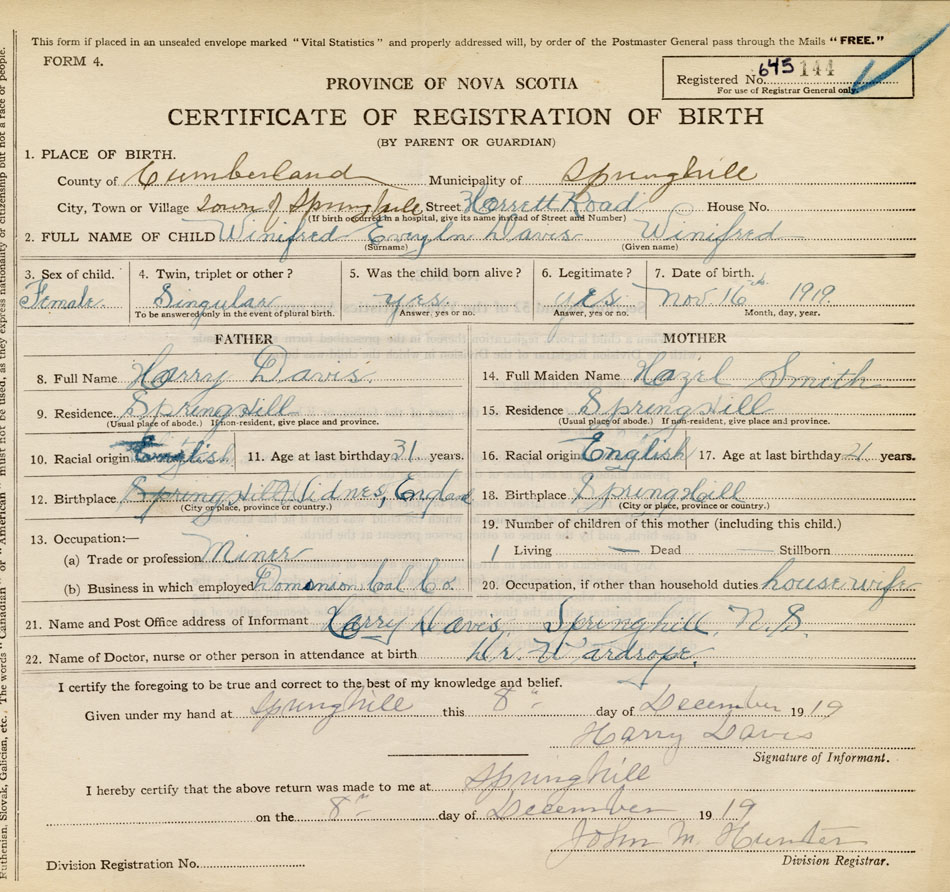 This form if placed in an unsealed envelope marked "Vital Statistics" and properly addressed will, by order of the Postmaster General pass through the Mails "FREE."
FORM 4.
Registered No. 645 144
For use of Registrar General only.
PROVINCE OF NOVA SCOTIA
CERTIFICATE OF REGISTRATION OF BIRTH
(BY PARENT OR GUARDIAN)
1. PLACE OF BIRTH.
County of Cumberland Municipality of Springhill
City, Town or Village Town of Springhill Street Herrett Road House No.
(If birth occurred in a hospital, give its name instead of Street and Number)
2. FULL NAME OF CHILD Winifred Evyln Davis Winifred
(Surname) (Given name)
3. Sex of child. 4. Twin, triplet or other? 5. Was the child born alive? 6. Legitimate? 7. Date of birth.
Female Singular yes. yes Nov. 16th 1919.
To be answered only in the event of plural birth. Answer, yes or no. Answer, yes or no. Month, day, year.
FATHER MOTHER
8. Full Name Harry Davis. 14. Full Maiden Name Hazel Smith
9. Residence. Springhill 15. Residence Springhill
(Usual place of abode.) If non-resident, give place and province. (Usual place of abode.) If non-resident, give place and province.
10. Racial origin English 11. Age at last birthday 31 years. 16. Racial origin English 17. Age at last birthday 21 years.
12. Birthplace Springhill Widnes, England 18. Birthplace Springhill
(City or place, province or country.) (City or place, province or country.)
19. Number of children of this mother (including this child.)
13. Occupation:—
(a) Trade or profession Miner 1 Living — Dead — Stillborn
(b) Business in which employed Dominion Coal Co. 20. Occupation, if other than household duties house wife
21. Name and Post Office address of Informant Harry Davis, Springhill, N.S.
22. Name of Doctor, nurse or other person in attendance at birth Dr. Wardrope.
I certify the foregoing to be true and correct to the best of my knowledge and belief.
Given under my hand at Springhill this 8" day of December 19 19
Harry Davis
Signature of Informant.
I hereby certify that the above return was made to me at Springhill
on the 8" day of December 19 19
John M. Hunter
Division Registration No.
Division Registrar.